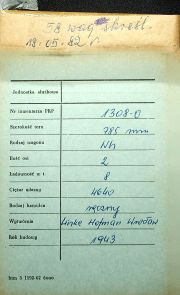 58 wag skreśl.
18.05.82 r
Jednostka służbowa
Nr inwentarza PKP 1308-D
Szerokość toru 785 mm
Rodzaj wagonu Nh
Ilość osi 2
Ładowność w t. 8
Ciężar własny 4640
Rodzaj hamulca ręczny
Wytwórnia Linke Hofman Wrocław
Rok budowy 1943